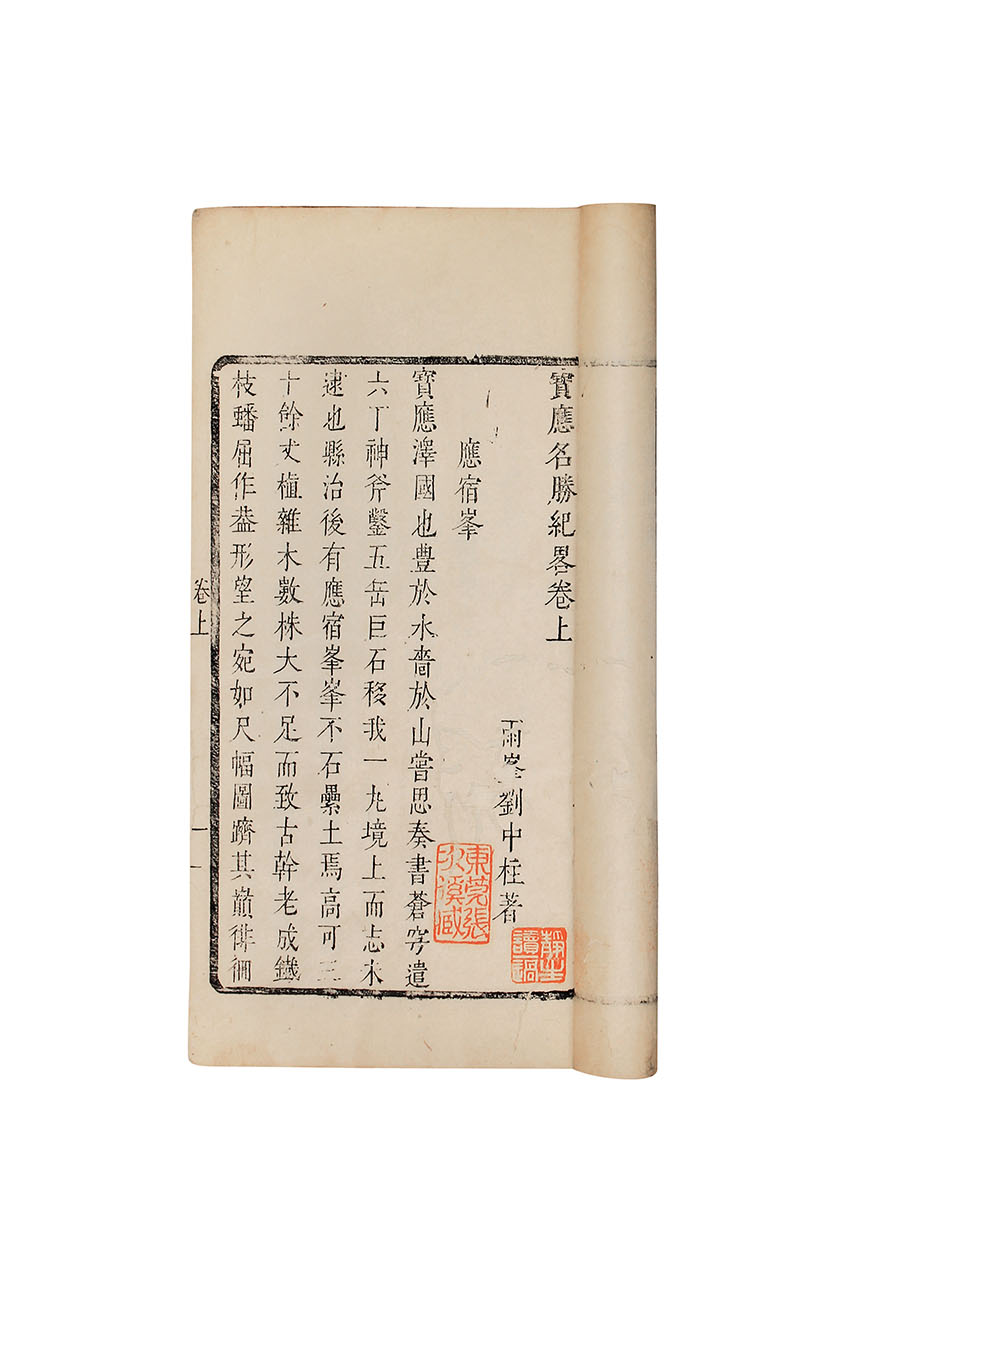 寶應名勝紀畧卷上
雨峯劉中柱著
應宿峯
寶應澤國也豊於水嗇於山嘗思奏書蒼穹遣
六丁神斧鑿五岳巨石移我一九境上而志未
逮也縣治後有應宿峯峯不石纍土焉高可三
十餘丈植雜木數株大不足而致古幹老成鐵
枝蟠屈作葢形望之宛如尺幅圖躋其巔徘徊
卷上
一
東莞張
次溪藏
靜生
讀過